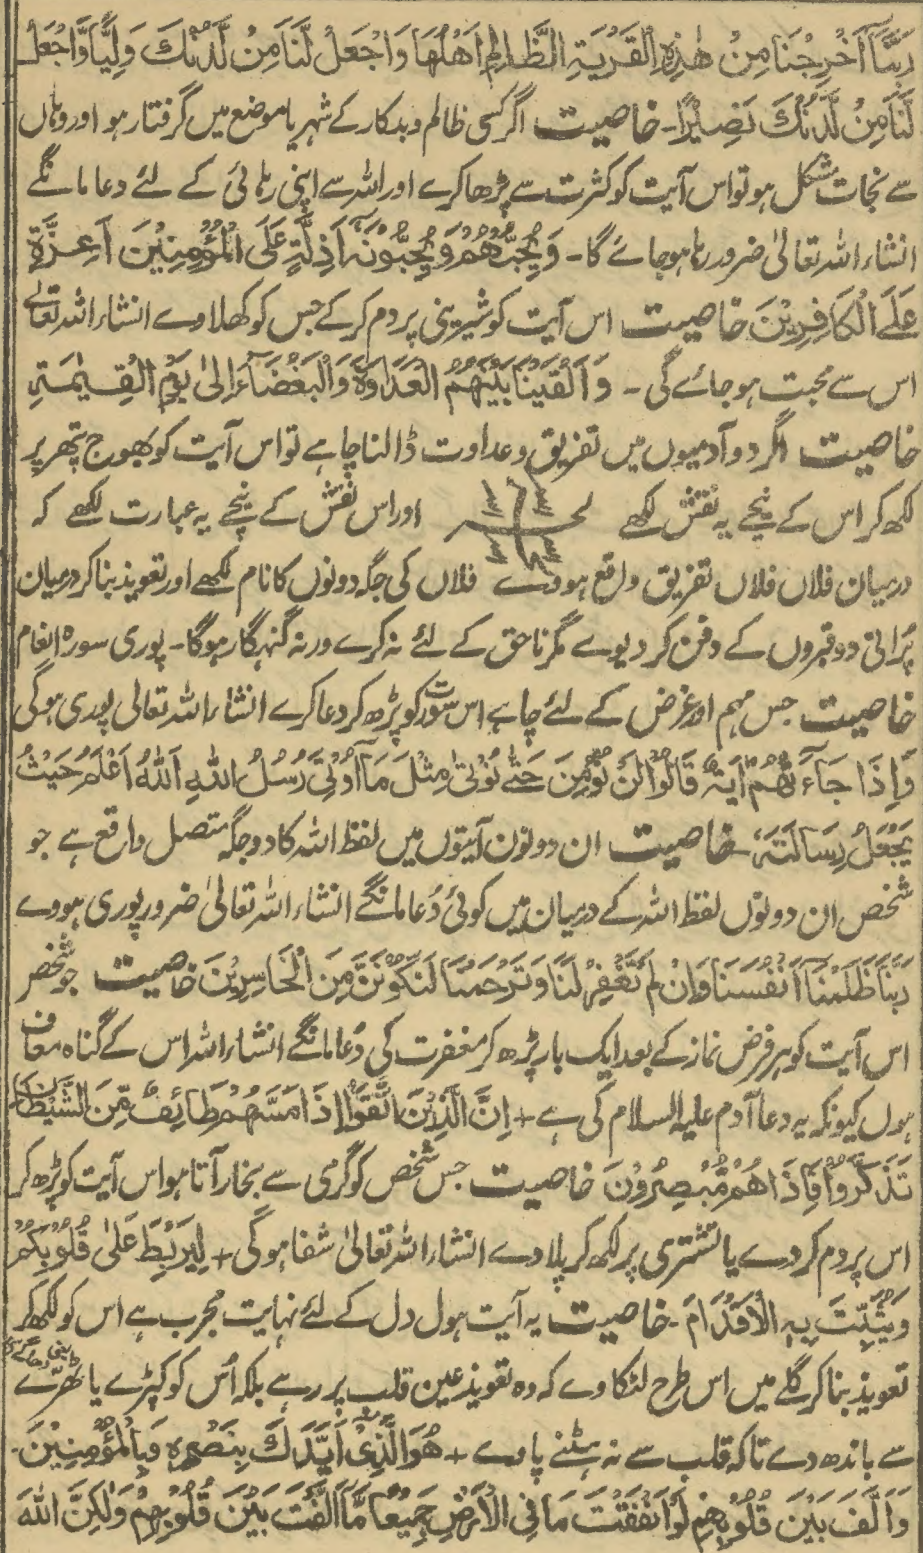 رَبَّنَا اَخْرِجْنَا مِنْ هٰذِهِ الْقَرْيَةِ الظَّالِمِ اَهْلُهَا وَاجْعَلْ لَّنَا مِنْ لَّدُنْكَ وَلِيًّا وَّاجْعَلْ
لَّنَا مِنْ لَّدُنْكَ نَصِيْرًا۔ خاصیت اگر کسی ظالم و بدکار کے شہر یا موضع میں گرفتار ہو اور وہاں
سے نجات مشکل ہو تو اس آیت کو کثرت سے پڑھا کرے اور اللہ سے اپنی رہائی کے لئے دعا مانگے
انشاء اللہ تعالیٰ ضرور رہا ہو جائے گا۔ وَيُحِبُّهُمْ وَيُحِبُّوْنَهٗ اَذِلَّةٍ عَلَى الْمُؤْمِنِيْنَ اَعِزَّةٍ
عَلَى الْكَافِرِيْنَ خاصیت اس آیت کو شیرینی پر دم کر کے جس کو کھلاوے انشاء اللہ تعالےٰ
اس سے محبت ہو جائے گی۔ وَاَلْقَيْنَا بَيْنَهُمُ الْعَدَاوَةَ وَالْبَغْضَآءَ اِلىٰ يَوْمِ الْقِيٰمَةِ
خاصیت اگر دو آدمیوں میں تفریق و عداوت ڈالنا چاہے تو اس آیت کو بھوج پتھر پر
لکھ کر اس کے نیچے یہ نقش لکھے اور اس نقش کے نیچے یہ عبارت لکھے کہ
درمیان فلاں فلاں تفریق واقع ہووے فلاں کی جگہ دونوں کا نام لکھے اور تعویذ بنا کر درمیان
پُرانی دو قبروں کے دفن کر دیوے مگر ناحق کے لئے نہ کرے ورنہ گنہگار ہوگا۔ پوری سورہ انعام
خاصیت جس مہم اور غرض کے لئے چاہے اس سورت کو پڑھ کر دعا کرے انشاء اللہ تعالیٰ پوری ہوگی
وَاِذَا جَآءَتْهُمْ اٰيَةٌ قَالُوْا لَنْ نُّؤْمِنَ حَتّٰى نُؤْتٰى مِثْلَ مَآ اُوْتِيَ رُسُلُ اللهِ اَللهُ اَعْلَمُ حَيْثُ
يَجْعَلُ رِسَالَتَهٗ۔ خاصیت ان دونوں آیتوں میں لفظ اللہ کا دو جگہ متصل واقع ہے جو
شخص ان دونوں لفظ اللہ کے درمیان میں کوئی دُعا مانگے انشاء اللہ تعالیٰ ضرور پوری ہووے
رَبَّنَا ظَلَمْنَا اَنْفُسَنَا وَاِنْ لَّمْ تَغْفِرْ لَنَا وَتَرْحَمْنَا لَنَكُوْنَنَّ مِنَ الْخَاسِرِيْنَ خاصیت جو شخص
اس آیت کو ہر فرض نماز کے بعد ایک بار پڑھ کر مغفرت کی دُعا مانگے انشاء اللہ اس کے گناہ معاف
ہوں کیونکہ یہ دعا آدم علیہ السلام کی ہے + اِنَّ الَّذِيْنَ اتَّقَوْا اِذَا مَسَّهُمْ طَائِفٌ مِّنَ الشَّيْطَانِ
تَذَكَّرُوْا فَاِذَا هُمْ مُّبْصِرُوْنَ خاصیت جس شخص کو گرمی سے بخار آتا ہو اس آیت کو پڑھ کر
اس پر دم کر دے یا تشتری پر لکھ کر پلاوے انشاء اللہ تعالیٰ شفا ہوگی + لِيَرْبِطَ عَلىٰ قُلُوْبِكُمْ
وَيُثَبِّتَ بِهِ الْاَقْدَامَ۔ خاصیت یہ آیت ہول دل کے لئے نہایت مجرب ہے اس کو لکھ کر
تعویذ بنا کر گلے میں اس طرح لٹکاوے کہ وہ تعویذ عین قلب پر رہے بلکہ اُس کو کپڑے یا
سے باندھ دے تاکہ قلب سے نہ ہٹنے پاوے + هُوَ الَّذِيْ اَيَّدَكَ بِنَصْرِهٖ وَبِالْمُؤْمِنِيْنَ۔
وَاَلَّفَ بَيْنَ قُلُوْبِهِمْ لَوْ اَنْفَقْتَ مَا فِى الْاَرْضِ جَمِيْعًا مَّا اَلَّفْتَ بَيْنَ قُلُوْبِهِمْ وَلٰكِنَّ اللهَ